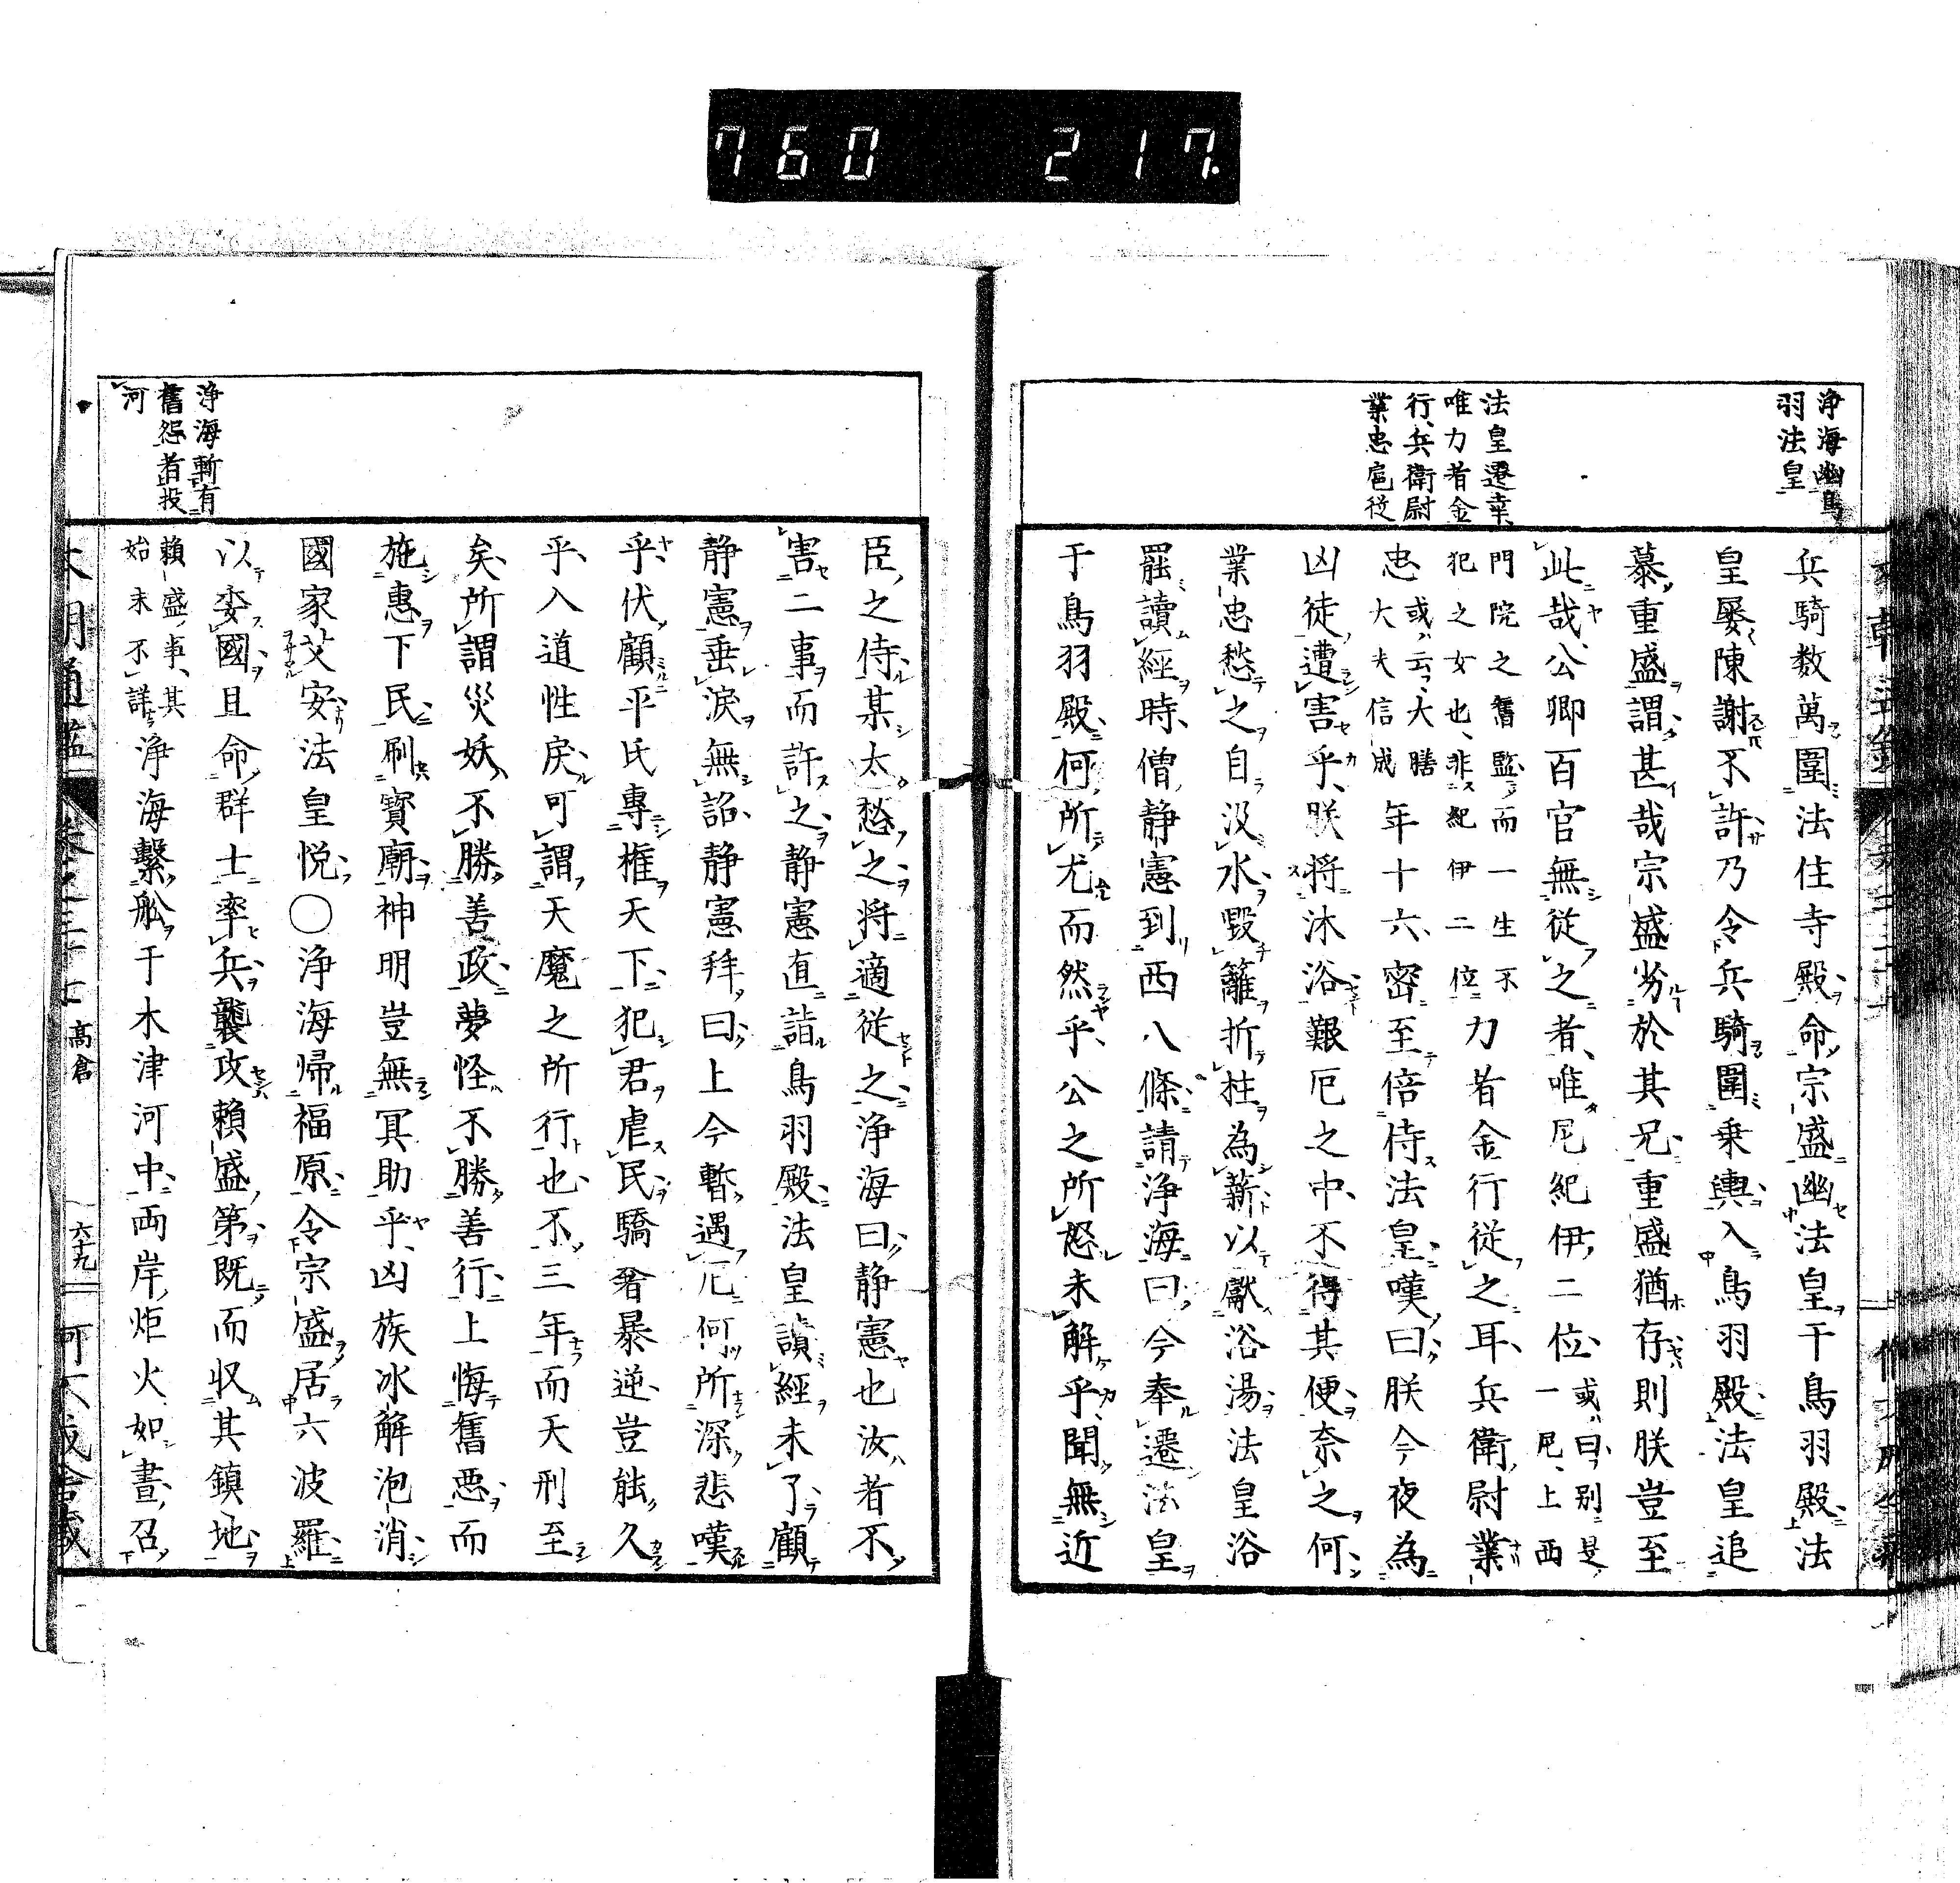 760 217
浄海幽鳥
羽法皇
法皇遷幸
唯力者金
行兵衛尉
業忠扈從
兵騎数萬圍法住寺殿命宗盛幽法皇于鳥羽殿法
皇屡陳謝不許乃令兵騎圍乗輿入鳥羽殿法皇追
慕重盛謂甚哉宗盛劣於其兄重盛猶存則朕豈至
此哉公卿百官無從之者唯尼紀伊二位或曰別是一尼上西
門院之舊監而一生不
犯之女也非紀伊二位力者金行從之耳兵衛尉業
忠或云大膳
大夫信成年十六密至倍侍法皇嘆曰朕今夜為
凶徒遭害乎朕将沐浴艱厄之中不得其便奈之何
業忠愁之自汲水毀籬折柱為薪以獻浴湯法皇浴
罷讀經時僧静憲到西八條請浄海曰今奉遷法皇
于鳥羽殿何所尤而然乎公之所怒未解乎聞無近
浄海暫有
舊怨者投
河
臣之侍某太愁之将適從之浄海曰静憲也汝者不
害二事而許之静憲直詣鳥羽殿法皇讀經未了顧
静憲垂淚無詔静憲拜曰上今暫遇厄何所深悲嘆
乎伏顧平氏專權天下犯君虐民驕奢暴逆豈能久
乎入道性戻可謂天魔之所行也不三年而天刑至
矣所謂災妖不勝善政夢怪不勝善行上悔舊悪而
施惠下民刷寳廟神明豈無冥助乎凶族冰解泡消
國家艾安法皇悦〇浄海帰福原令宗盛居六波羅
以委國且命群士率兵襲攻頼盛第既而収其鎮地
頼盛事其
始末不詳浄海繫舩于木津河中両岸炬火如晝召
本朝通鑑 卷之三十七 高倉 六十九